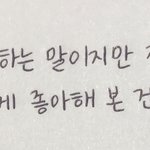 하는 말이지만
게 좋아해 본 건